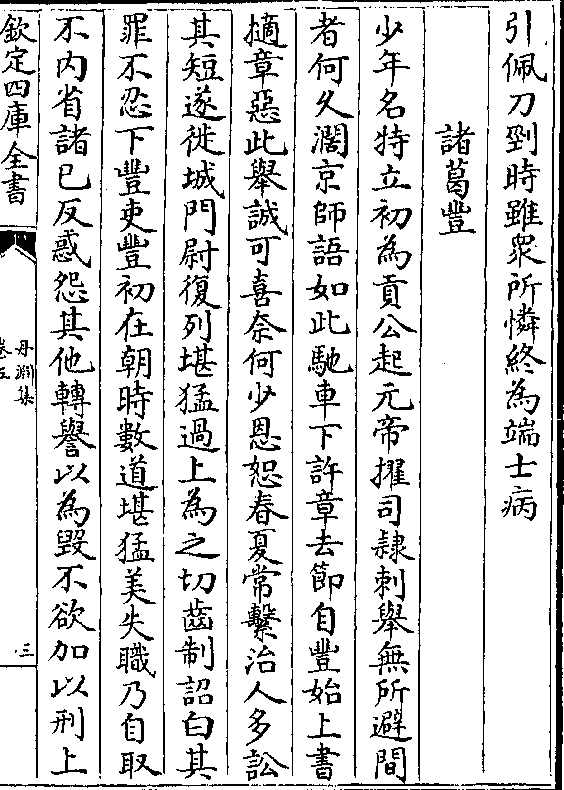 引佩刀剄時雖衆所憐終為端士病
諸葛豐
少年名特立初為貢公起元帝擢司隷刺舉無所避間
者何久濶京師語如此馳車下許章去節自豐始上書
擿章惡此舉誠可喜奈何少恩恕春夏常繫治人多訟
其短遂徙城門尉復列堪猛過上為之切齒制詔白其
罪不忍下豐吏豐初在朝時數道堪猛美失職乃自取
不内省諸已反惑怨其他轉譽以為毀不欲加以刑上
欽定四庫全書
丹淵集
卷五
三